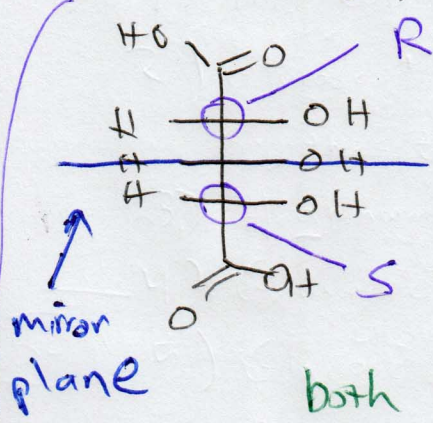 HO
O
R
H OH
H OH
H OH
O
OH
S
mirror
plane
both